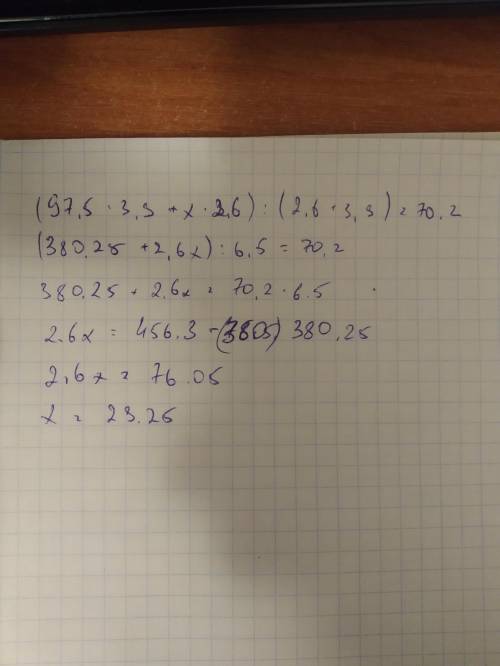 (97,5 · 3,9 + x · 2,6) : (2,6 + 3,9) = 70,2
(380,25 + 2,6x) : 6,5 = 70,2
380,25 + 2,6x = 70,2 · 6.5
2.6x = 456.3 - (3805) 380,25
2,6x = 76.05
x = 29.25